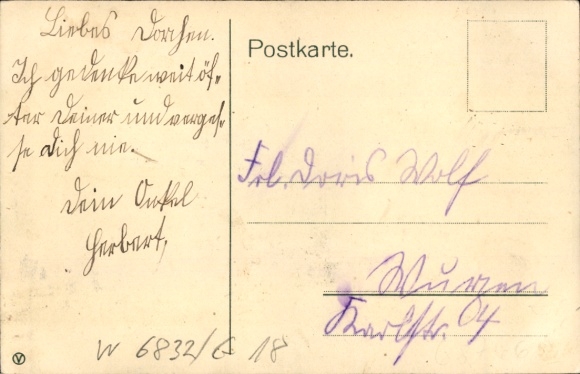 Liebes Dorchen.
Ich gedenke weit öf-
ter Deiner und verges-
se Dich nie.
Dein Onkel
Herbert.
Postkarte.
Frl. Doris Wolf
Wurzen
Karlstr. 04
W 6832/E 18
V